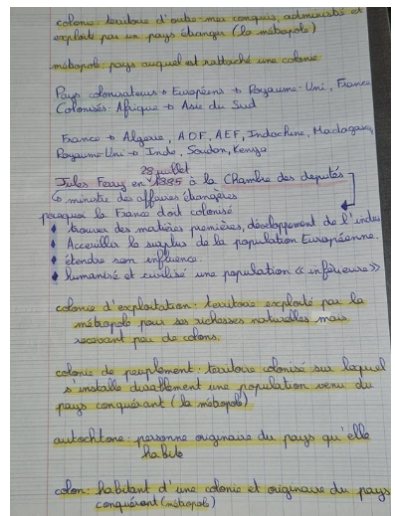 colonie: territoire d'outre-mer conquis, administré et
exploité par un pays étranger (la métropole)
métropole: pays auquel est rattaché une colonie
Pays colonisateurs → Européens → Royaume-Uni, France
Colonisés: Afrique → Asie du Sud
France → Algerie, AOF, AEF, Indochine, Madagascar,
Royaume-Uni → Inde, Soudan, Kenya
28 juillet
Jules Ferry en 1885 à la Chambre des deputés
↳ ministre des affaires étrangères
pourquoi la France doit colonisé
• trouver des matières premières, développement de l'indus
• Acceuillir le surplus de la population Européenne.
• étendre son influence.
• humanisé et civilisé une population « inférieure »
colonie d'exploitation: territoire exploité par la
métropole pour ses richesses naturelles mais
recevant peu de colons.
colonie de peuplement: territoire colonisé sur laquel
s'installe durablement une population venu du
pays conquérant (la métropole)
autochtone: personne originaire du pays qu'elle
habite
colon: habitant d'une colonie et originaire du pays
conquérant (métropole)